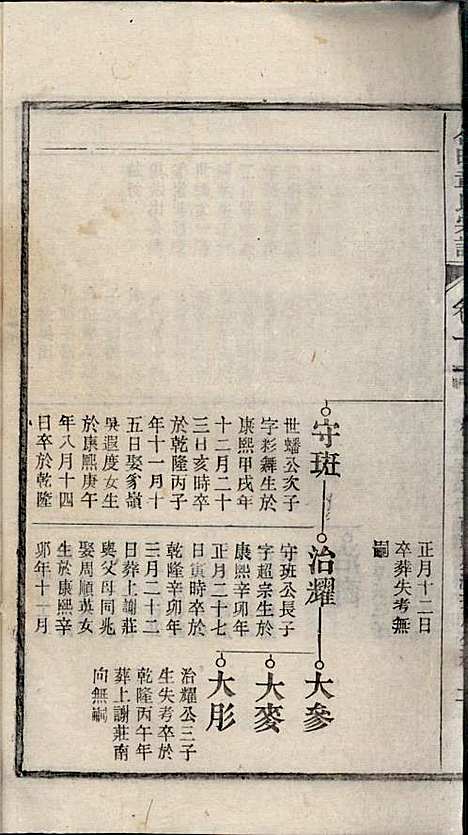 正月十二日
卒葬失考無
嗣
守班
世蟠公次子
字彩舞生於
康熙甲戌年
十二月二十
三日亥時卒
於乾隆丙子
年十一月十
五日娶象嶺
吳遐度女生
於康熙庚午
年八月十四
日卒於乾隆
治耀
守班公長子
字超宗生於
康熙辛卯年
正月二十七
日寅時卒於
乾隆辛卯年
三月二十二
日葬上謝莊
與父母同兆
娶周順英女
生於康熙辛
卯年十一月
大參
大麥
大彤
治耀公三子
生失考卒於
乾隆丙午年
葬上謝莊南
向無嗣